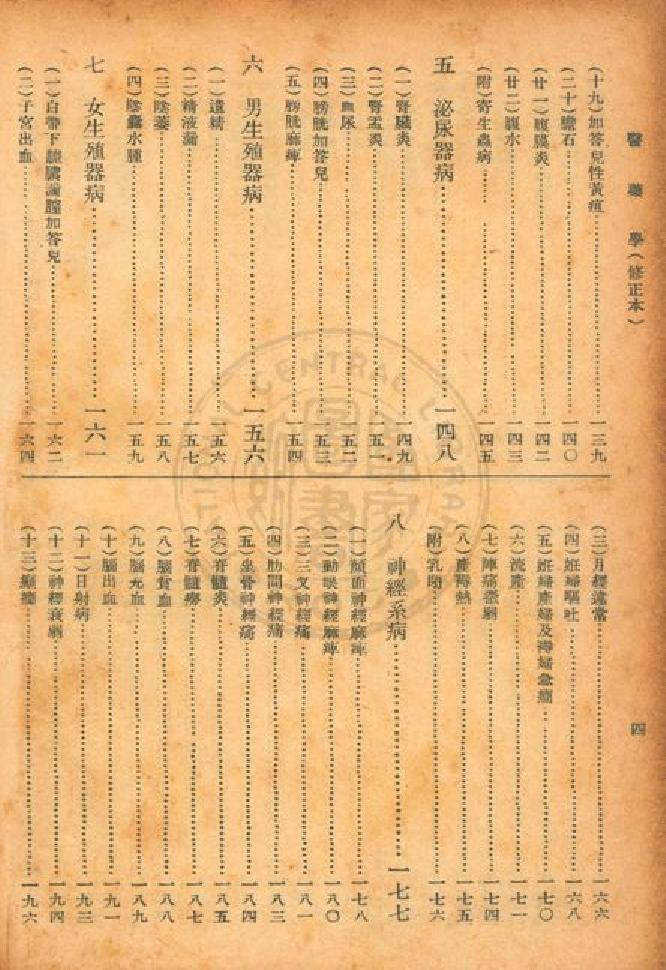 醫藥學(修正本)
四
(十九)加答兒性黃疸……一三九
(二十)膽石……一四〇
(廿一)腹膜炎……一四二
(廿二)腹水……一四三
(附)寄生蟲病……一四五
五 泌尿器病……一四八
(一)腎臟炎……一四九
(二)腎盂炎……一五一
(三)血尿……一五二
(四)膀胱加答兒……一五三
(五)膀胱麻痺……一五四
六 男生殖器病……一五六
(一)遺精……一五六
(二)精液漏……一五七
(三)陰萎……一五八
(四)陰囊水腫……一五九
七 女生殖器病……一六一
(一)白帶下膣加答兒……一六二
(二)子宮出血……一六四
(三)月經違常……一六六
(四)妊婦嘔吐……一六八
(五)妊婦產婦及褥婦急癇……一七〇
(六)流產……一七一
(七)陣痛微弱……一七四
(八)產褥熱……一七五
(附)乳……一七六
八 神經系病……一七七
(一)顏面神經麻痺……一七八
(二)動眼神經麻痺……一八〇
(三)三叉神經痛……一八一
(四)肋間神經痛……一八三
(五)坐骨神經痛……一八四
(六)脊髓炎……一八五
(七)脊髓癆……一八七
(八)腦貧血……一八八
(九)腦充血……一八九
(十)腦出血……一九一
(十一)日射病……一九三
(十二)神經衰弱……一九四
(十三)癲癇……一九六